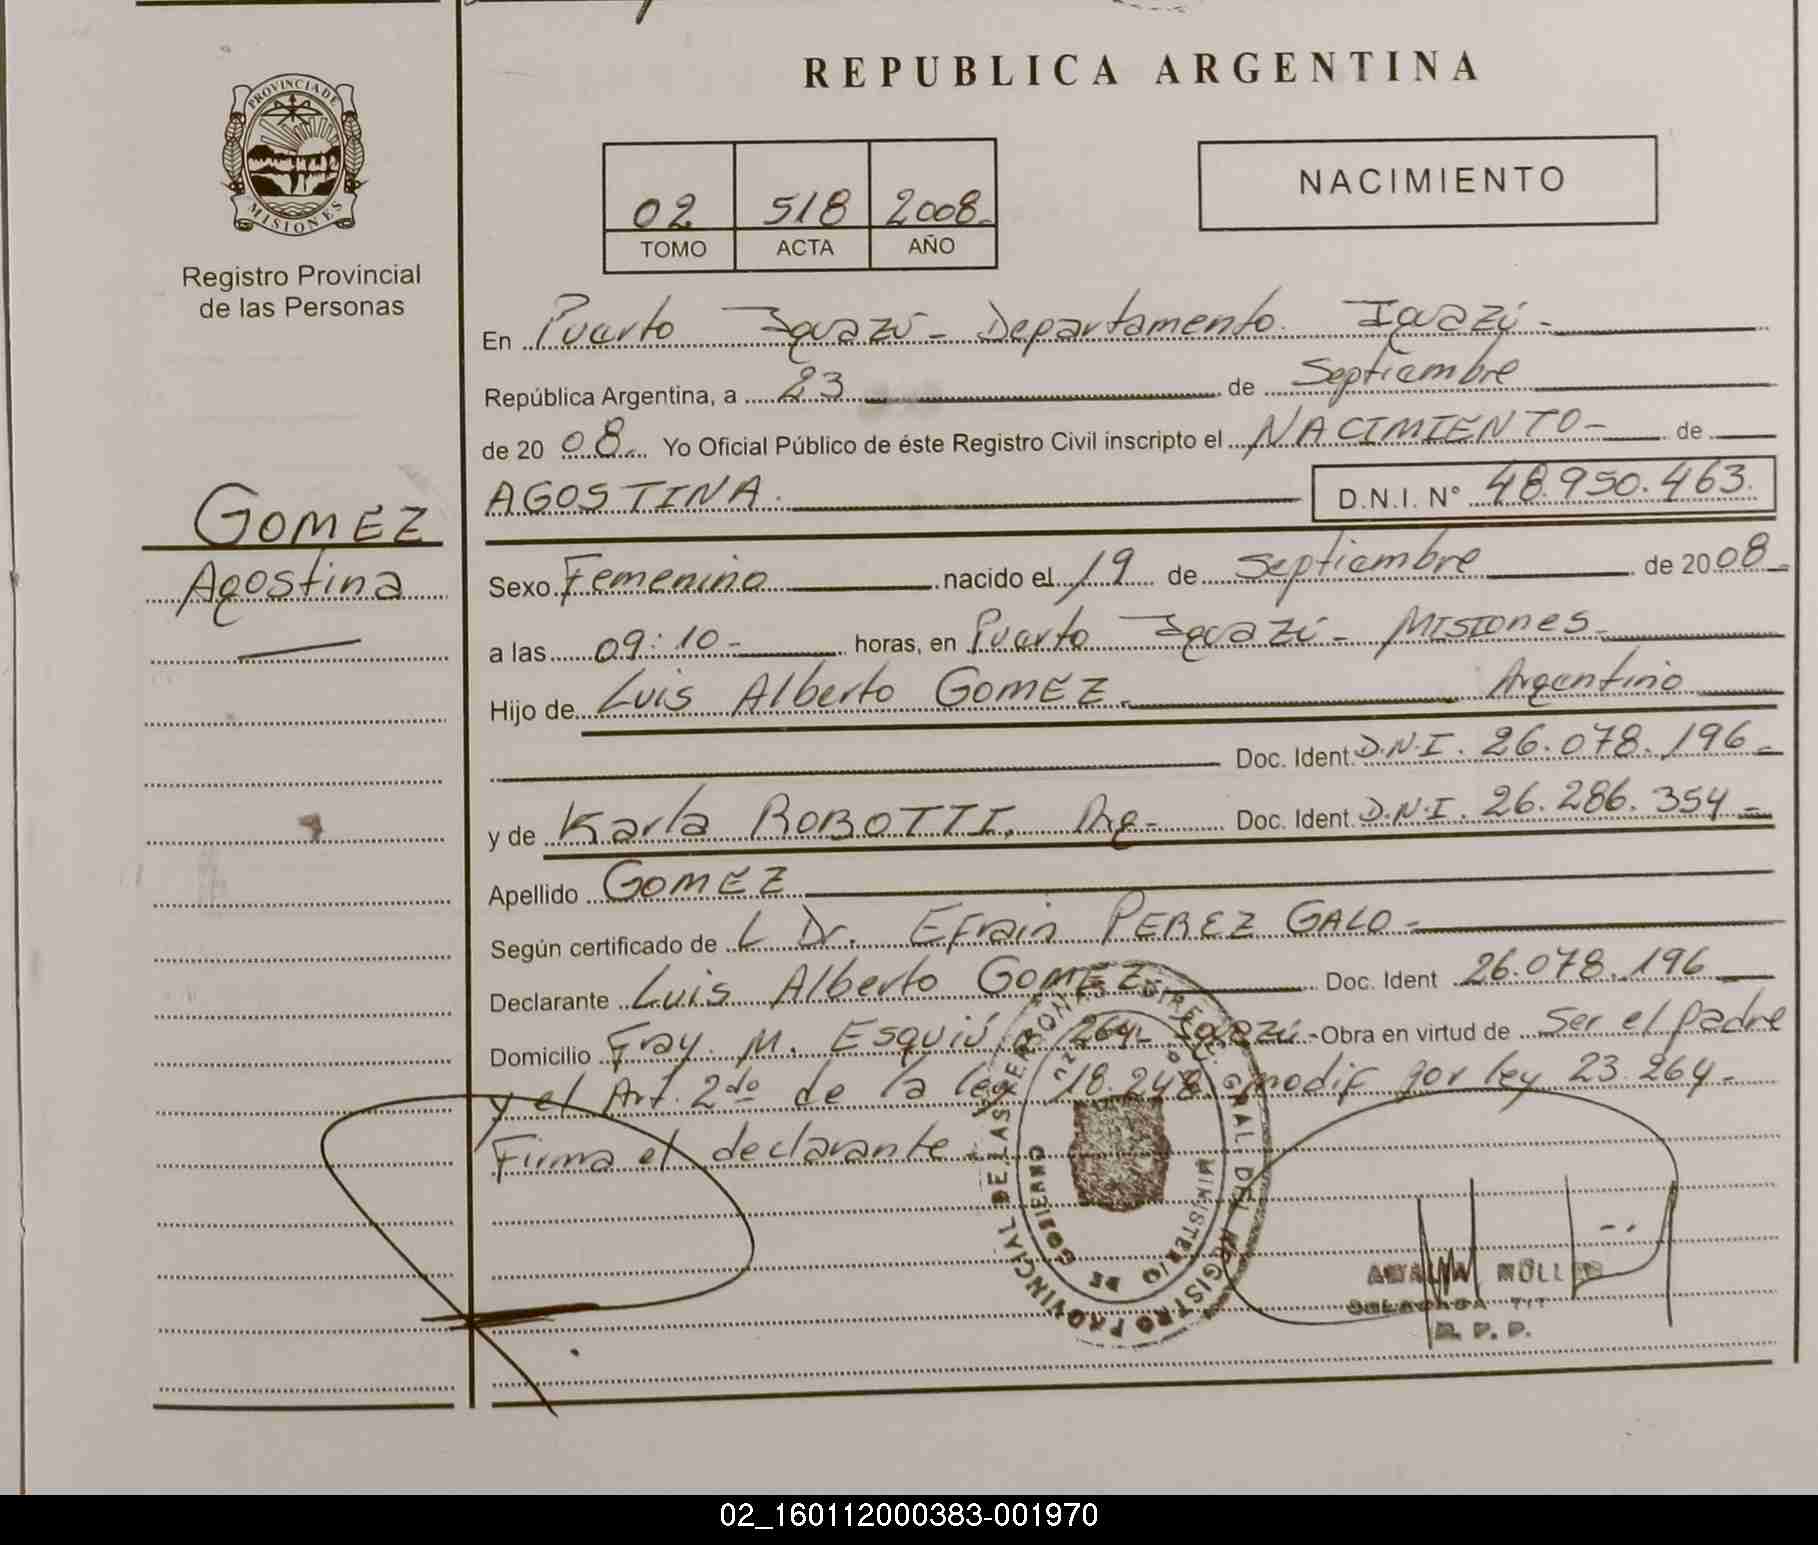 REPUBLICA ARGENTINA
PROVINCIA DE
MISIONES
Registro Provincial
de las Personas
02 518 2008
TOMO ACTA AÑO
NACIMIENTO
En Puerto Iguazú - Departamento Iguazú -
República Argentina, a 23 de Septiembre
de 20 08. Yo Oficial Público de éste Registro Civil inscripto el NACIMIENTO - de
AGOSTINA. D.N.I. N° 48.950.463.
GOMEZ
Agostina
Sexo Femenino nacido el 19 de Septiembre de 20 08 -
a las 09:10 - horas, en Puerto Iguazú - Misiones -
Hijo de Luis Alberto GOMEZ - Argentino
Doc. Ident. D.N.I. 26.078.196 -
y de Karla ROBOTTI. Arg - Doc. Ident. D.N.I. 26.286.354 -
Apellido GOMEZ
Según certificado de L Dr. Efrain PEREZ GALO -
Declarante Luis Alberto GOMEZ Doc. Ident 26.078.196
Domicilio Fray. M. Esquiú n° 264 - Iguazú - Obra en virtud de Ser el padre
y el Art. 2do de la ley 18.248 modif por ley 23.264 -
Firma el declarante
DIREC. GRAL. DEL REGISTRO PROVINCIAL DE LAS PERSONAS
MINISTERIO DE GOBIERNO
DELEGADA TIT
R. P. P.
02_160112000383-001970